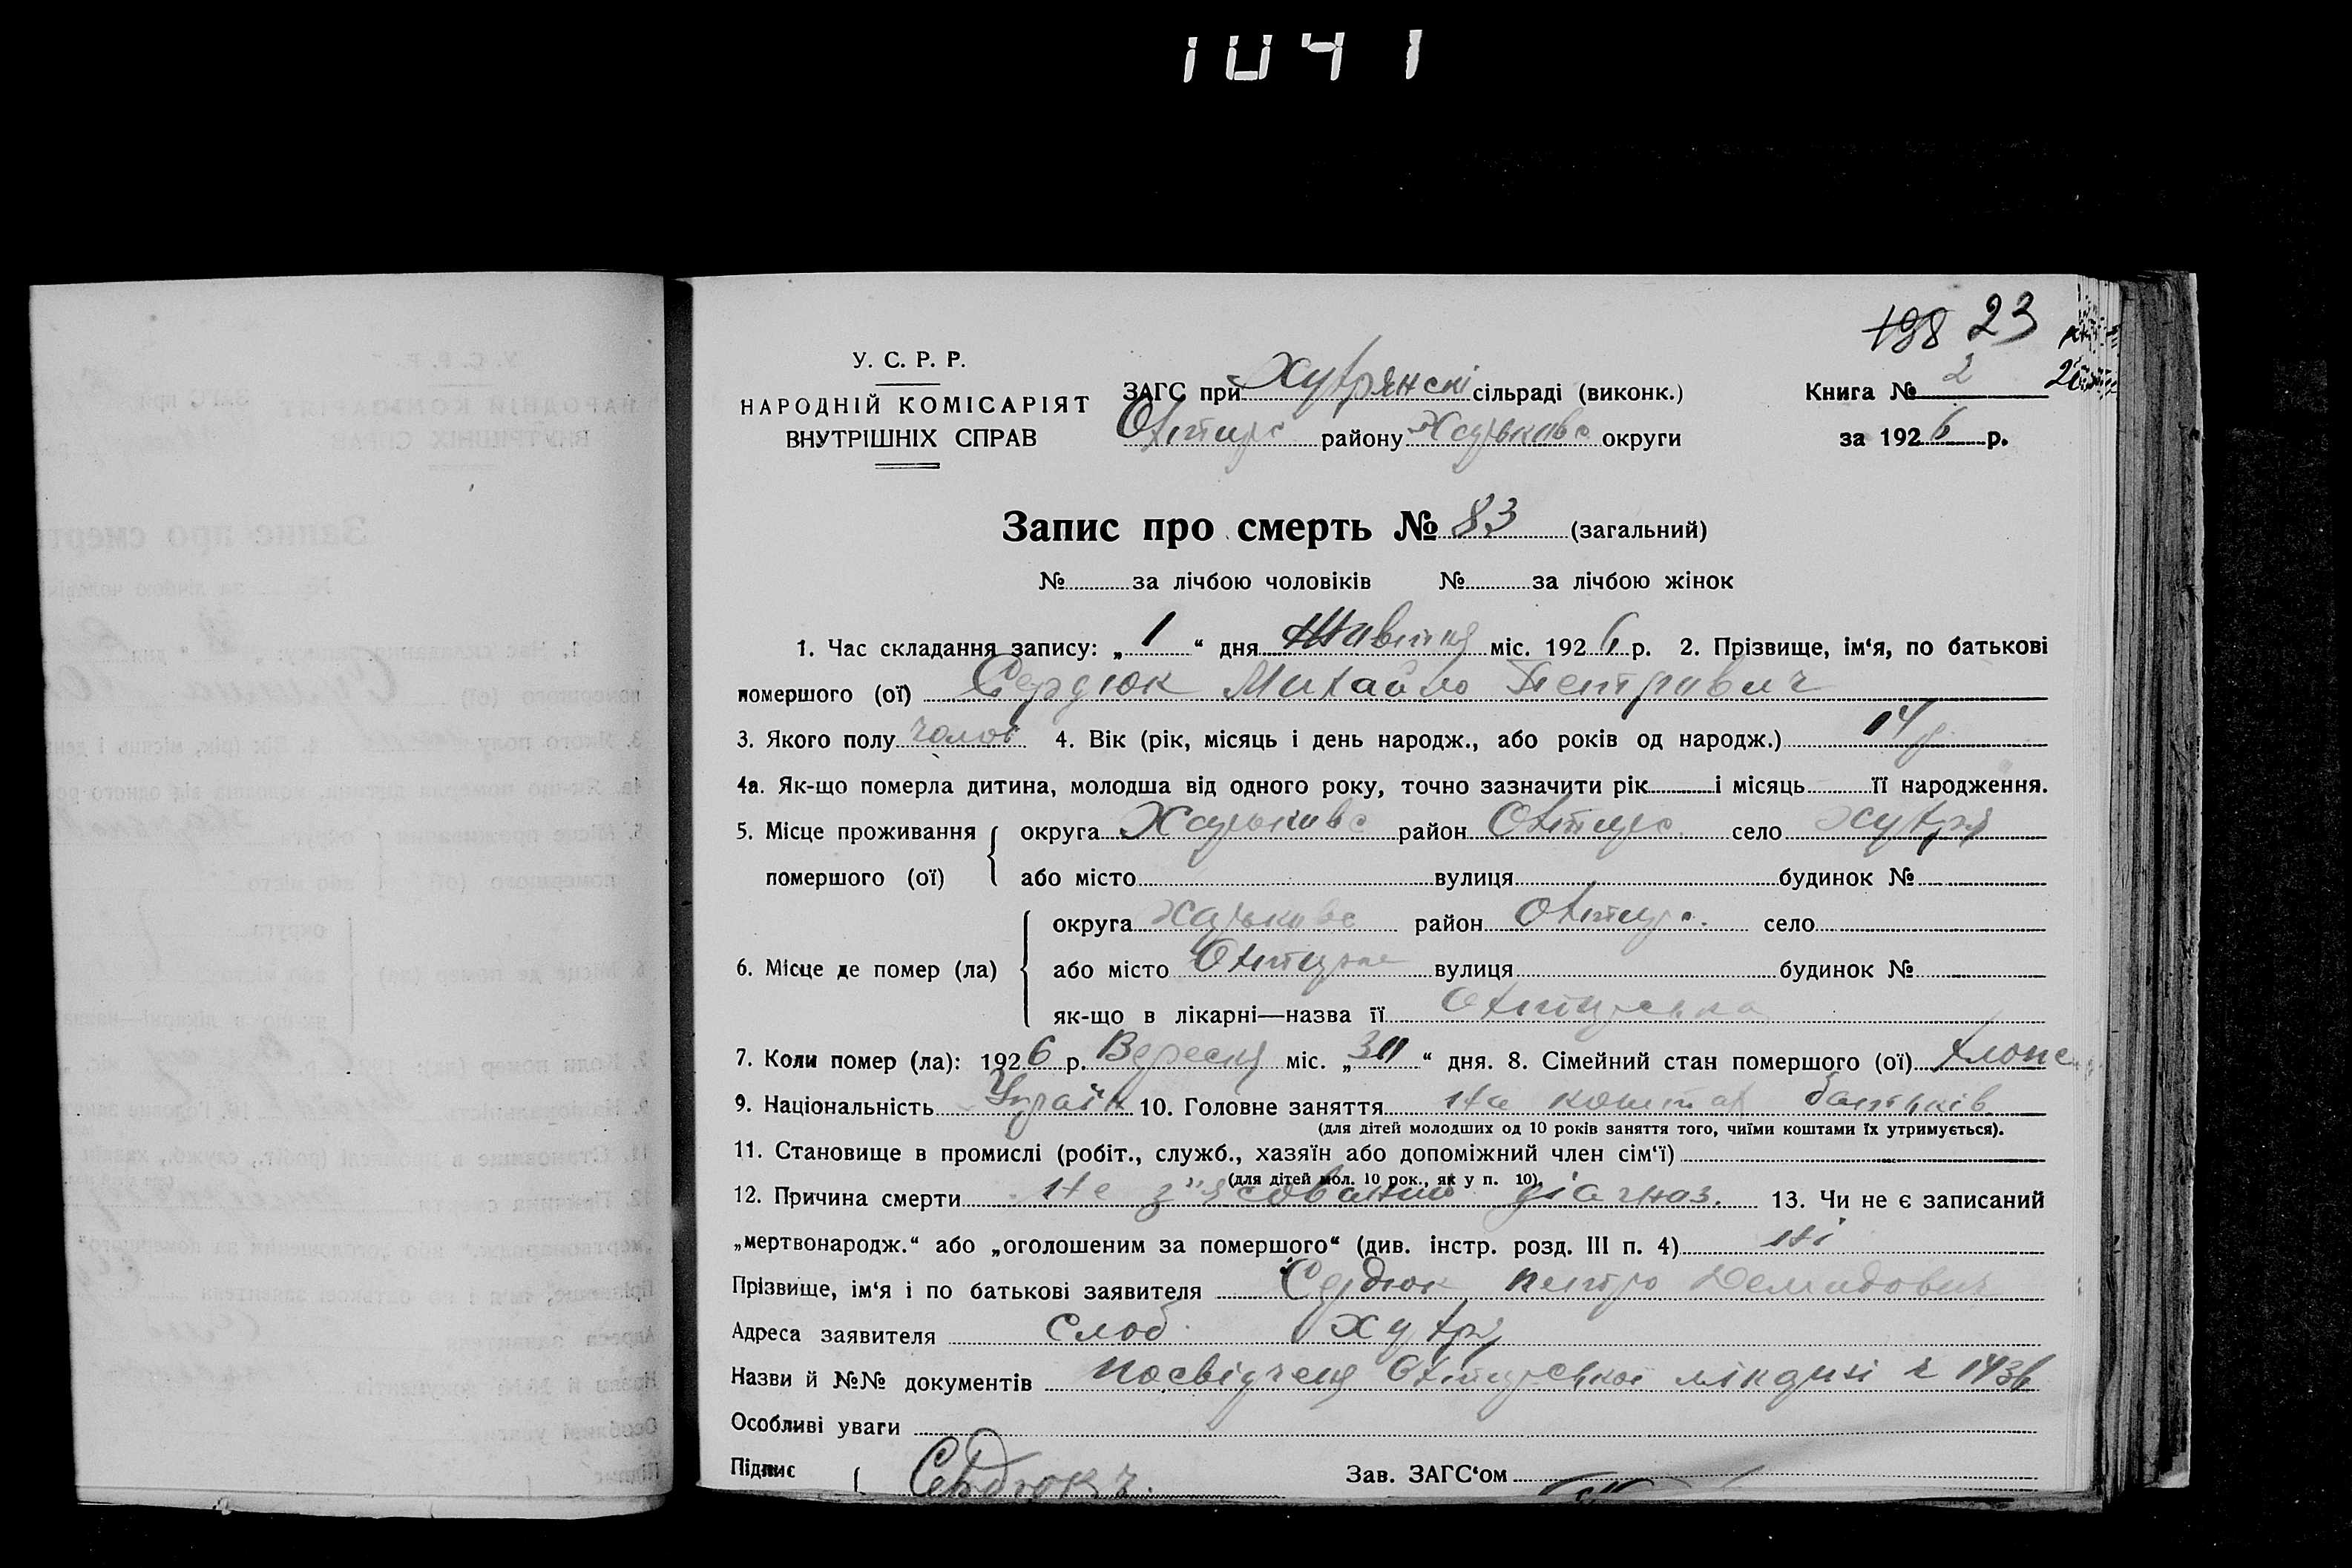 1041
198 23
У. С. Р. Р.
НАРОДНІЙ КОМІСАРІЯТ
ВНУТРІШНІХ СПРАВ
ЗАГС при Хухрянскі сільраді (виконк.)
Охтирс району Харьковс округи
Книга № 2
за 1926 р.
Запис про смерть № 83 (загальний)
№ за лічбою чоловіків № за лічбою жінок
1. Час складання запису: „1“ дня Жовтня міс. 1926 р. 2. Прізвище, ім‘я, по батькові
помершого (ої) Сердюк Михайло Петрович
3. Якого полу чолов 4. Вік (рік, місяць і день народж., або років од народж.) 14 р
4а. Як-що померла дитина, молодша від одного року, точно зазначити рік і місяць її народження.
5. Місце проживання помершого (ої) округа Харьковс район Охтирс. село Хухря
або місто вулиця будинок №
6. Місце де помер (ла) округа Харьковс район Охтирс. село
або місто Охтирка вулиця будинок №
як-що в лікарні—назва її Охтирська
7. Коли помер (ла): 1926 р. Вересня міс. „30“ дня. 8. Сімейний стан помершого (ої) хлопець
9. Національність Україн 10. Головне заняття На коштах батьків
(для дітей молодших од 10 років заняття того, чиїми коштами їх утримується).
11. Становище в промислі (робіт., служб., хазяїн або допоміжний член сім‘ї)
(для дітей мол. 10 рок., як у п. 10).
12. Причина смерти Не з'ясований діагноз. 13. Чи не є записаний
„мертвонародж.“ або „оголошеним за помершого“ (див. інстр. розд. III п. 4) Ні
Прізвище, ім‘я і по батькові заявителя Сердюк Петро
Адреса заявителя Слоб. Хухря
Назви й №№ документів Посвідченя Охтирської лікарні
Особливі уваги
Підпис Сердюк
Зав. ЗАГС‘ом